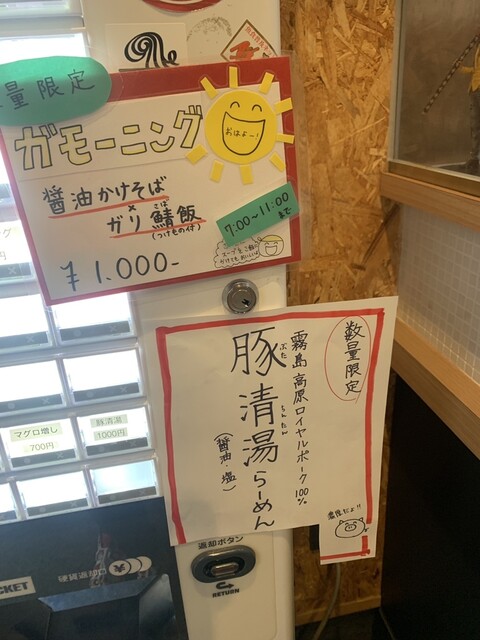 量限定
ガモーニング
おはよー!
醤油かけそば
×
ガリ鯖飯
さば
(つけもの付)
7:00~11:00
まで
スープをご飯に
かけてもおいしいよ
¥1.000-
数量限定
霧島高原ロイヤルポーク100%
豚清湯らーめん
ぶた ちんたん
(醤油・塩)
濃厚だよ!!
マグロ増し
700円
豚清湯
1000円
返却ボタン
RETURN
硬貨返却口
¥
CKET